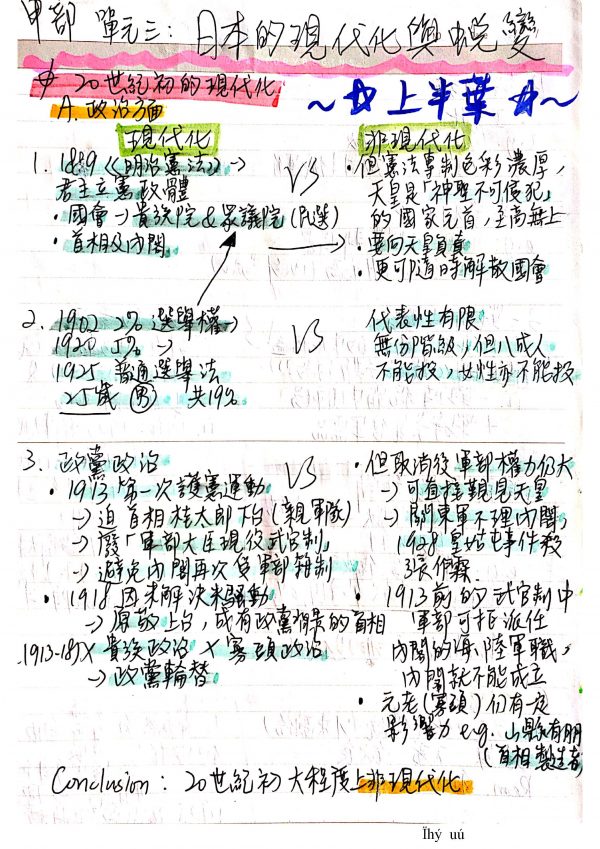 甲部 單元三：日本的現代化與蛻變
20世紀初的現代化
～☆上半葉☆～
A. 政治方面
現代化
非現代化
1. 1889《明治憲法》→
君主立憲政體
・國會→貴族院&眾議院(民選)
・首相及內閣
VS
・但憲法專制色彩濃厚，
天皇是「神聖不可侵犯」
的國家元首，至高無上
・要向天皇負責
・更可隨時解散國會
2. 1902 2% 選舉權→
1920 5% →
1925 普通選舉法
25歲 男 共19%
VS
代表性有限
無份階級，但八成人
不能投，女性亦不能投
3. 政黨政治
・1913 第一次護憲運動
→迫首相桂太郎下台(親軍隊)
→廢「軍部大臣現役武官制」
→避免內閣再次受軍部箝制
・1918 因未解決米騷動
→原敬上台，成有政黨背景的首相
(1913-18) X 貴族政治 X 寡頭政治
→政黨輪替
VS
・但取消後軍部權力仍大
→可直接覲見天皇
→關東軍不理內閣，
1928皇姑屯事件殺
張作霖
・1913前的武官制中
軍部可拒派任
內閣的海、陸軍職，
內閣就不能成立
・元老(寡頭)仍有一定
影響力 e.g. 山縣有朋
(首相製造者)
Conclusion：20世紀初大程度上非現代化
Ïhý uú